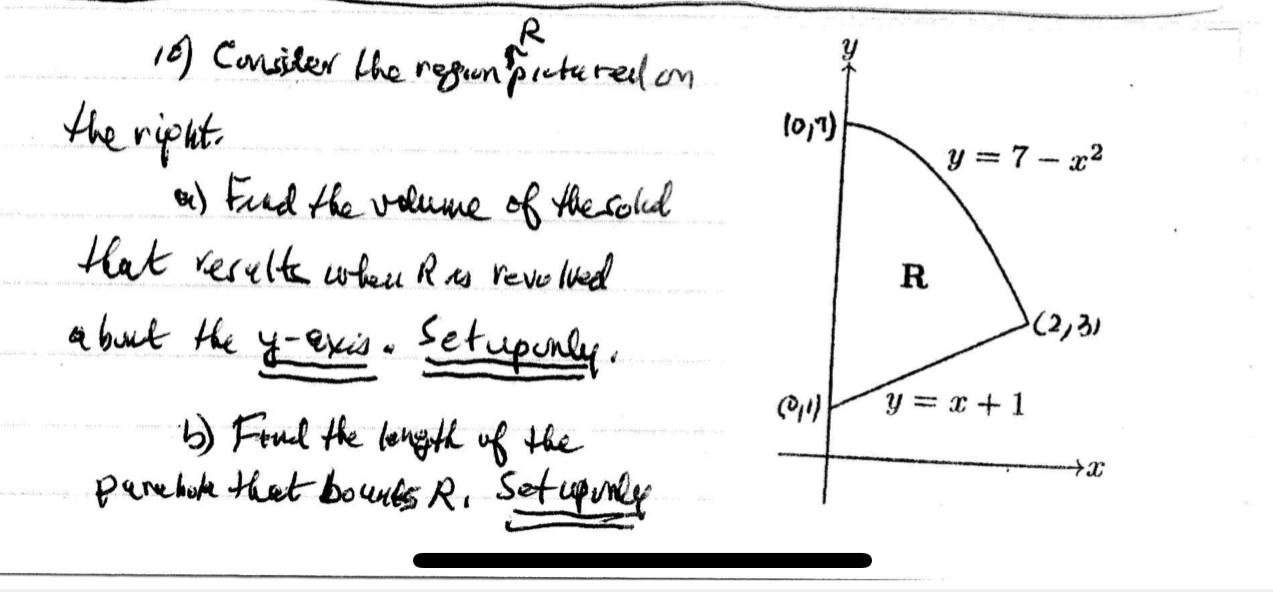 10) Consider the region R pictured on
the right.
a) Find the volume of the solid
that results when R is revolved
about the y-axis. Set up only.
b) Find the length of the
parabola that bounds R. Set up only
y
(0,7)
y = 7 − x²
R
(2,3)
(0,1)
y = x + 1
x